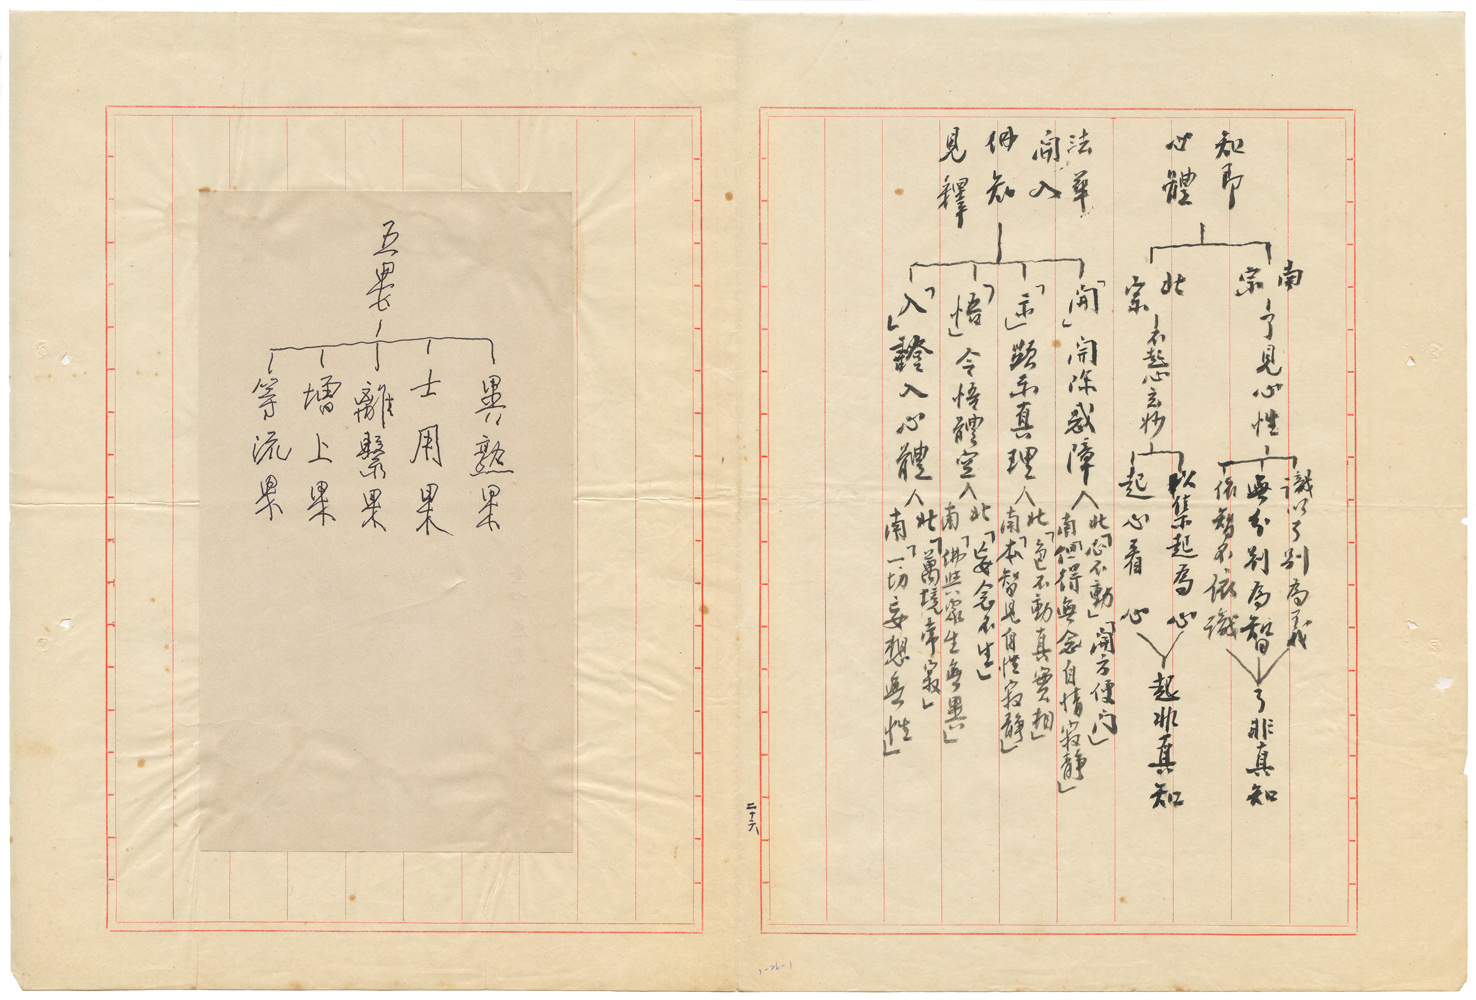 知即
心體
南
宗
了見心性
識以了別為義
無分別為智
依智不依識
了非真知
北
宗
不起心玄妙
以集起為心
起心看心
起非真知
法華
開入
佛知
見釋
「開」開除惑障
北「心不動」「開方便門」
南「但得無念自情寂靜」
「示」顯示真理
北「色不動真實相」
南「本智見自性寂靜」
「悟」令悟體空
北「妄念不生」
南「佛與眾生無異」
「入」證入心體
北「萬境常寂」
南「一切妄想無性」
二十六
1-26-1
五果
異熟果
士用果
離繫果
增上果
等流果